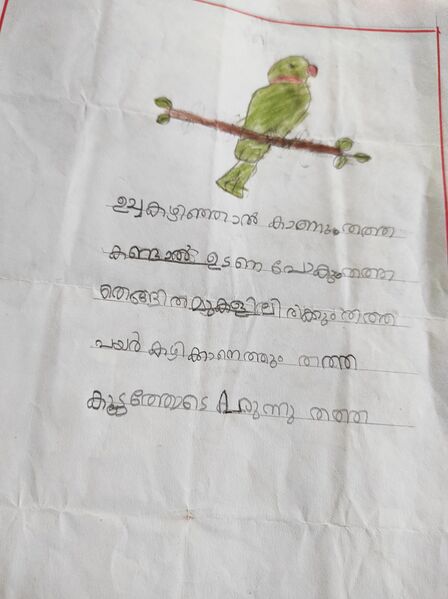 ഉച്ചകഴിഞ്ഞാൽ കാണും തത്ത
കണ്ടാൽ ഉടനെ പോകും തത്ത
തെങ്ങിൻ മുകളിലിരിക്കും തത്ത
പയർ കഴിക്കാനെത്തും തത്ത
കൂട്ടത്തോടെ വരുന്നു തത്ത